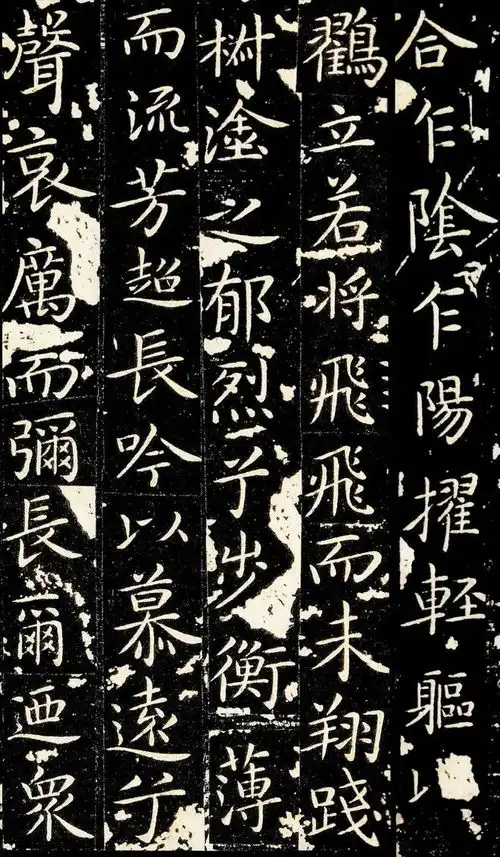 合乍陰乍陽擢輕軀以
鸖立若将飛飛而未翔踐
椒塗之郁烈步衡薄
而流芳超長吟以慕遠兮
聲哀厲而彌長爾迺衆